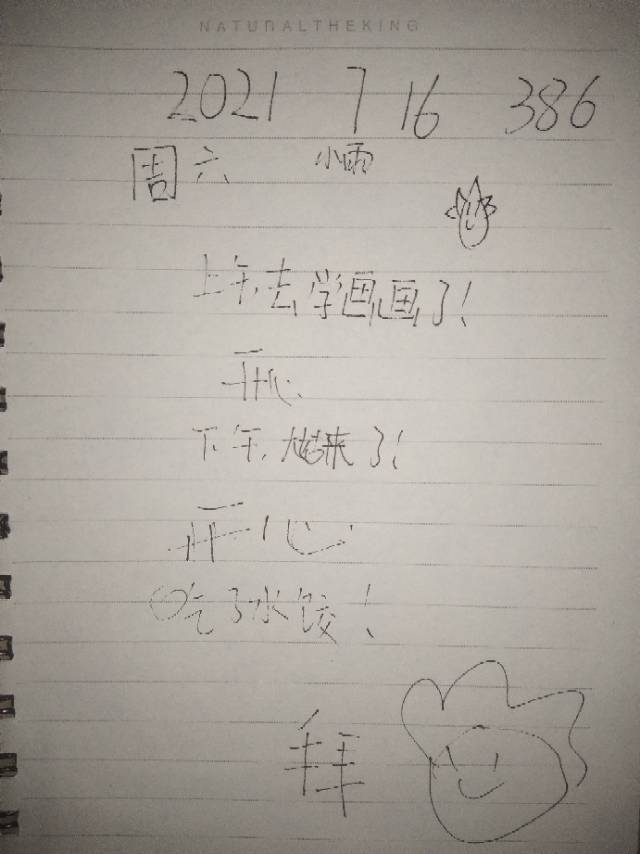 NATURALTHEKING
2021 7 16 386
周六 小雨
上午,去学画画了!
开心
下午,来了!
开心
吃了水饺!
拜